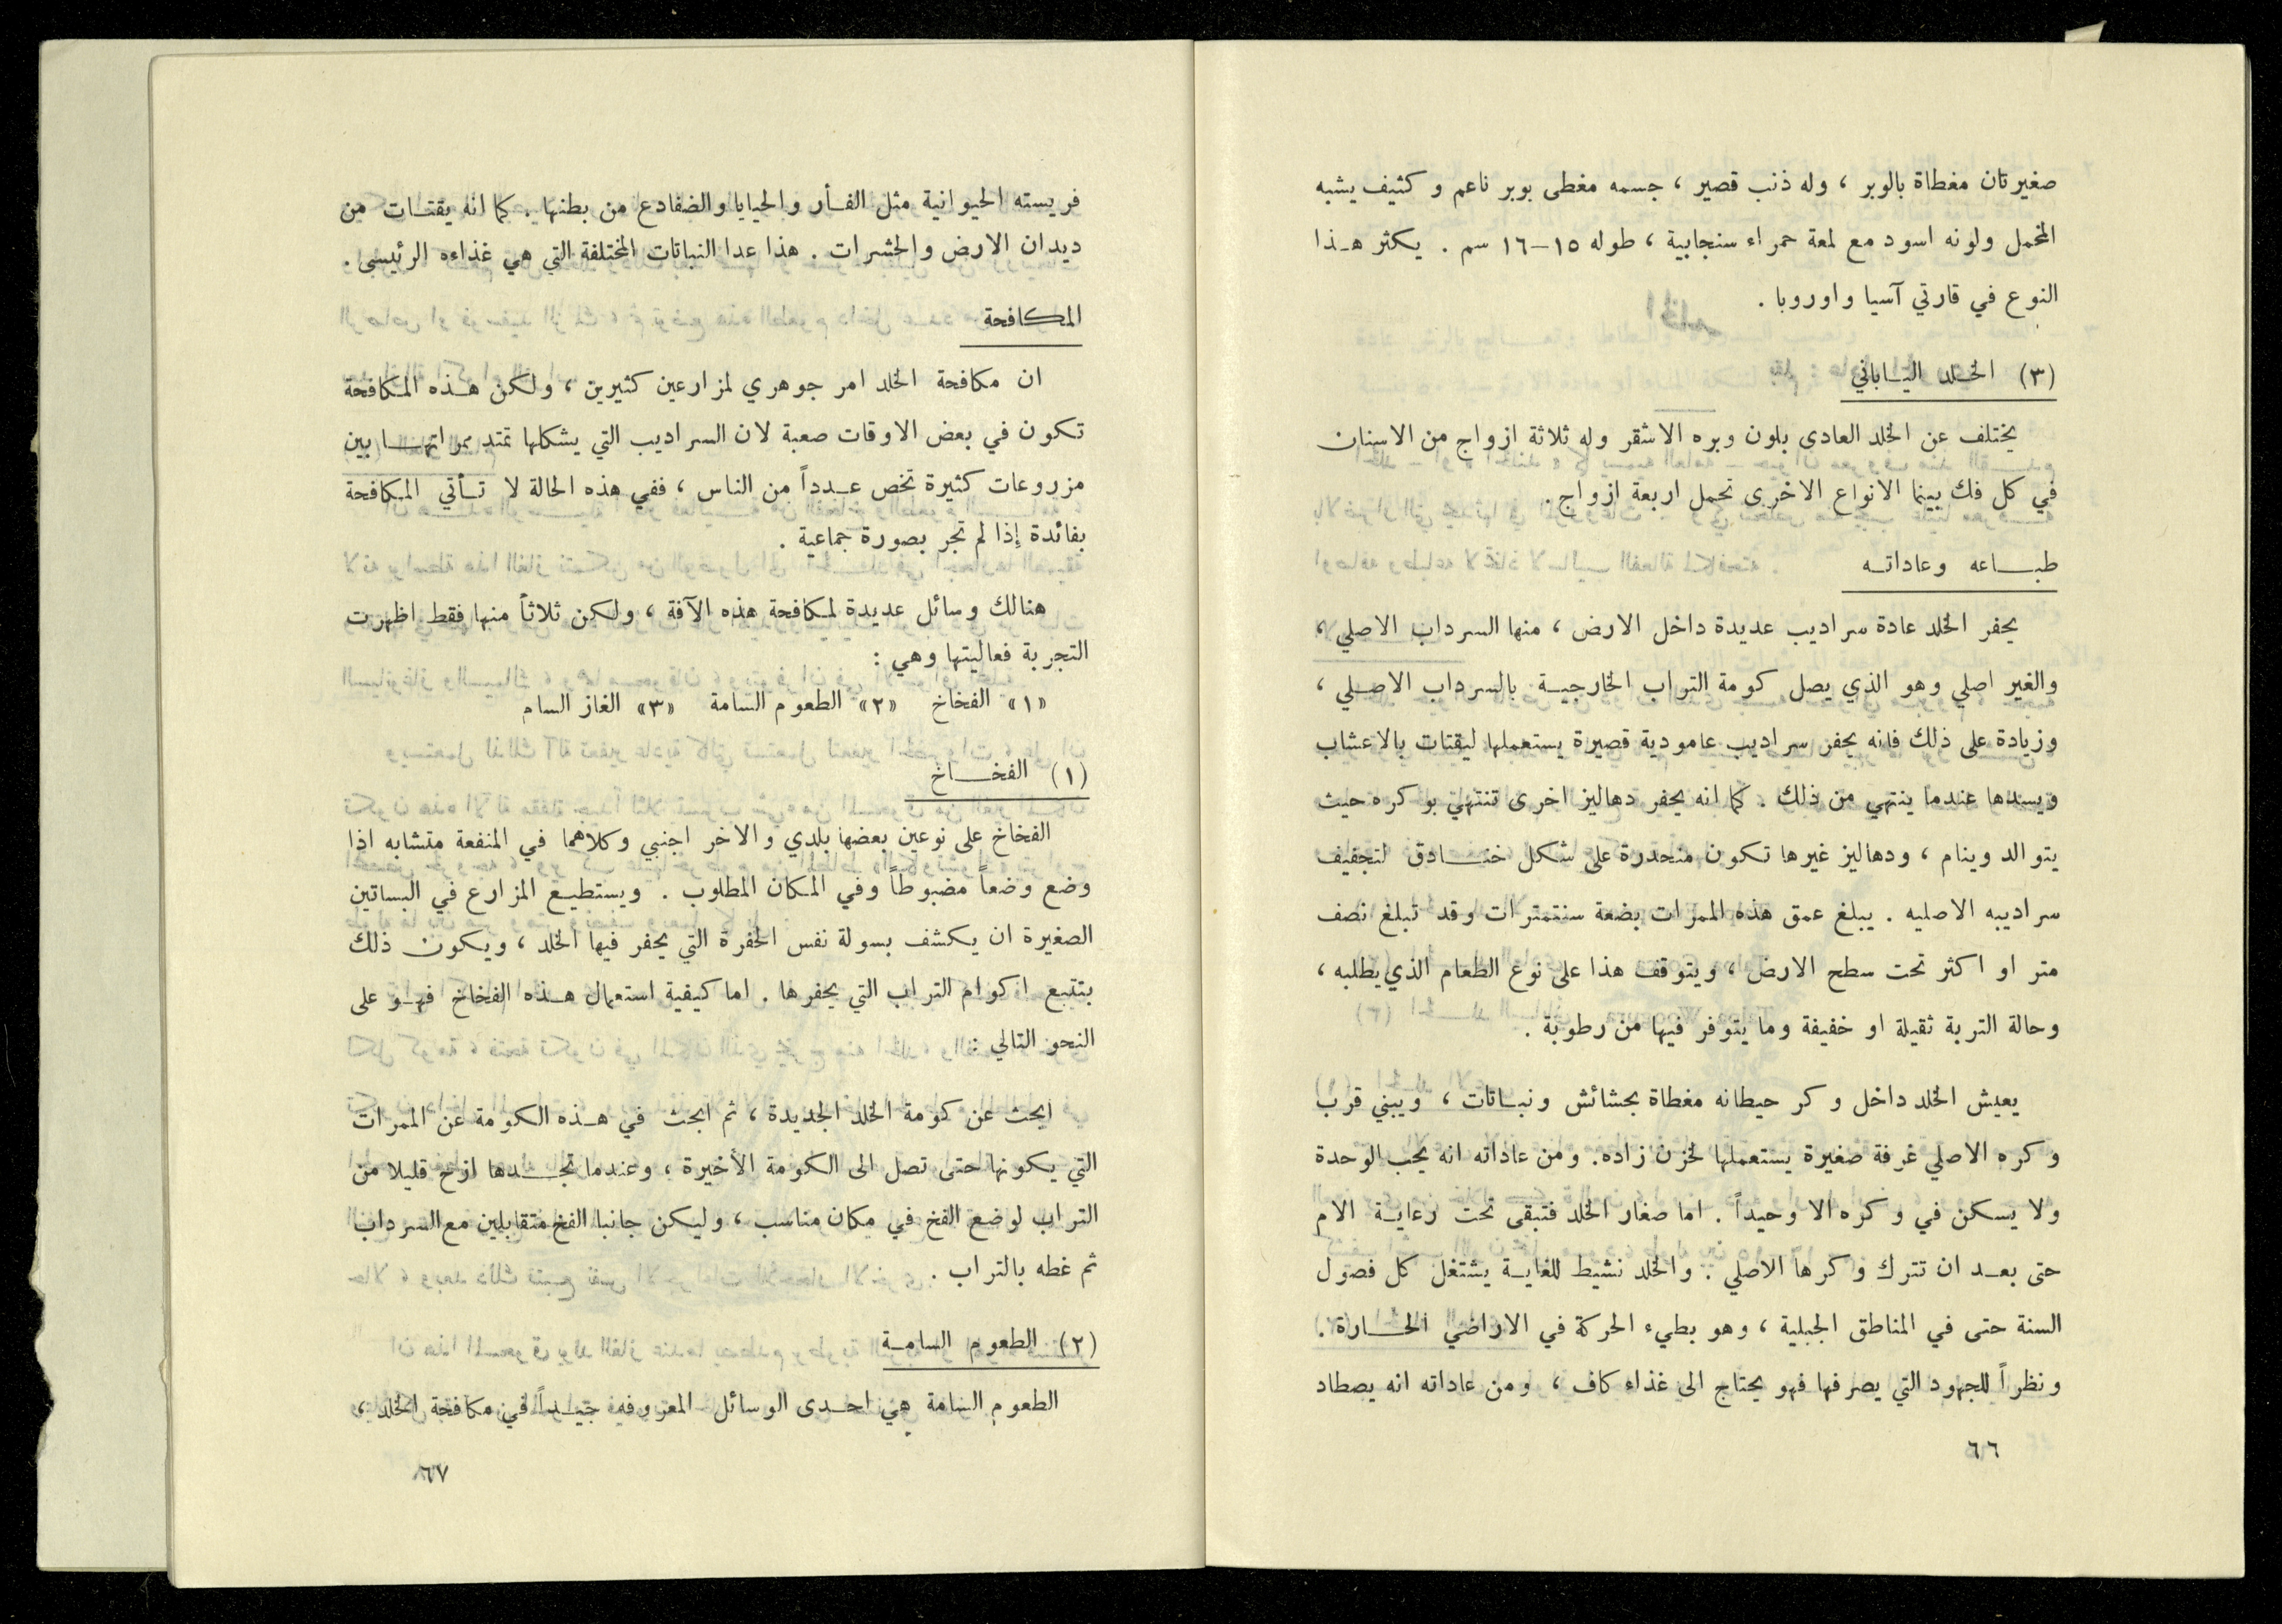 صغيرتان مغطاة بالوبر ، وله ذنب قصير ، جسمه مغطى بوبر ناعم وكثيف يشبه
المخمل ولونه اسود مع لمعة حمراء سنجابية ، طوله ١٥-١٦ سم . يكثر هذا
النوع في قارتي آسيا واوروبا .
(٣) الخلد الياباني
يختلف عن الخلد العادى بلون وبره الاشقر وله ثلاثة ازواج من الاسنان
في كل فك بينما الانواع الاخرى تحمل اربعة ازواج .
طباعه وعاداته
يحفر الخلد عادة سراديب عديدة داخل الارض ، منها السرداب الاصلي ،
والغير اصلي وهو الذي يصل كومة التراب الخارجية بالسرداب الاصلي ،
وزيادة على ذلك فانه يحفر سراديب عامودية قصيرة يستعملها ليقتات بالاعشاب
ويسدها عندما ينتهي من ذلك . كما انه يحفر دهاليز اخرى تنتهي بوكره حيث
يتوالد وينام ، ودهاليز غيرها تكون منحدرة على شكل خنادق لتجفيف
سراديبه الاصليه . يبلغ عمق هذه الممرات بضعة سنتمترات وقد تبلغ نصف
متر او اكثر تحت سطح الارض ، ويتوقف هذا على نوع الطعام الذي يطلبه ،
وحالة التربة ثقيلة او خفيفة وما يتوفر فيها من رطوبة .
يعيش الخلد داخل وكر حيطانه مغطاة بحشائش ونباتات ، ويبني قرب
وكره الاصلي غرفة صغيرة يستعملها لخزن زاده. ومن عاداته انه يحب الوحدة
ولا يسكن في وكره الا وحيداً . اما صغار الخلد فتبقى تحت رعاية الام
حتى بعد ان تترك وكرها الاصلي . والخلد نشيط للغاية يشتغل كل فصول
السنة حتى في المناطق الجبلية ، وهو بطيء الحركة في الاراضي الحارة .
ونظراً للجهود التي يصرفها فهو يحتاج الى غذاء كاف ، ومن عاداته انه يصطاد
٦٦
فريسته الحيوانية مثل الفأر والحيايا والضفادع من بطنها . كما انه يقتات من
ديدان الارض والحشرات . هذا عدا النباتات المختلفة التي هي غذاءه الرئيسى .
المكافحة
ان مكافحة الخلد امر جوهري لمزارعين كثيرين ، ولكن هذه المكافحة
تكون في بعض الاوقات صعبة لان السراديب التي يشكلها تمتد ممراتها بين
مزروعات كثيرة تخص عدداً من الناس ، ففي هذه الحالة لا تأتي المكافحة
بفائدة إذا لم تجر بصورة جماعية .
هنالك وسائل عديدة لمكافحة هذه الآفة ، ولكن ثلاثاً منها فقط اظهرت
التجربة فعاليتها وهي :
«١» الفخاخ «٢» الطعوم السامة «٣» الغاز السام
(١) الفخاخ
الفخاخ على نوعين بعضها بلدي والاخر اجنبي وكلاهما في المنفعة متشابه اذا
وضع وضعاً مضبوطاً وفي المكان المطلوب . ويستطيع المزارع في البساتين
الصغيرة ان يكشف بسولة نفس الحفرة التي يحفر فيها الخلد ، ويكون ذلك
بتتبع اكوام التراب التي يحفرها . اما كيفية استعمال هذه الفخاخ فهو على
النحو التالي :
ابحث عن كومة الخلد الجديدة ، ثم ابحث في هذه الكومة عن الممرات
التي يكونها حتى تصل الى الكومة الأخيرة ، وعندما تجدها ازح قليلا من
التراب لوضع الفخ في مكان مناسب ، وليكن جانبا الفخ متقابلين مع السرداب
ثم غطه بالتراب .
(٢) الطعوم السامة
الطعوم السامة هي احدى الوسائل المعروفه جيداً في مكافحة الخلد ،
٦٧